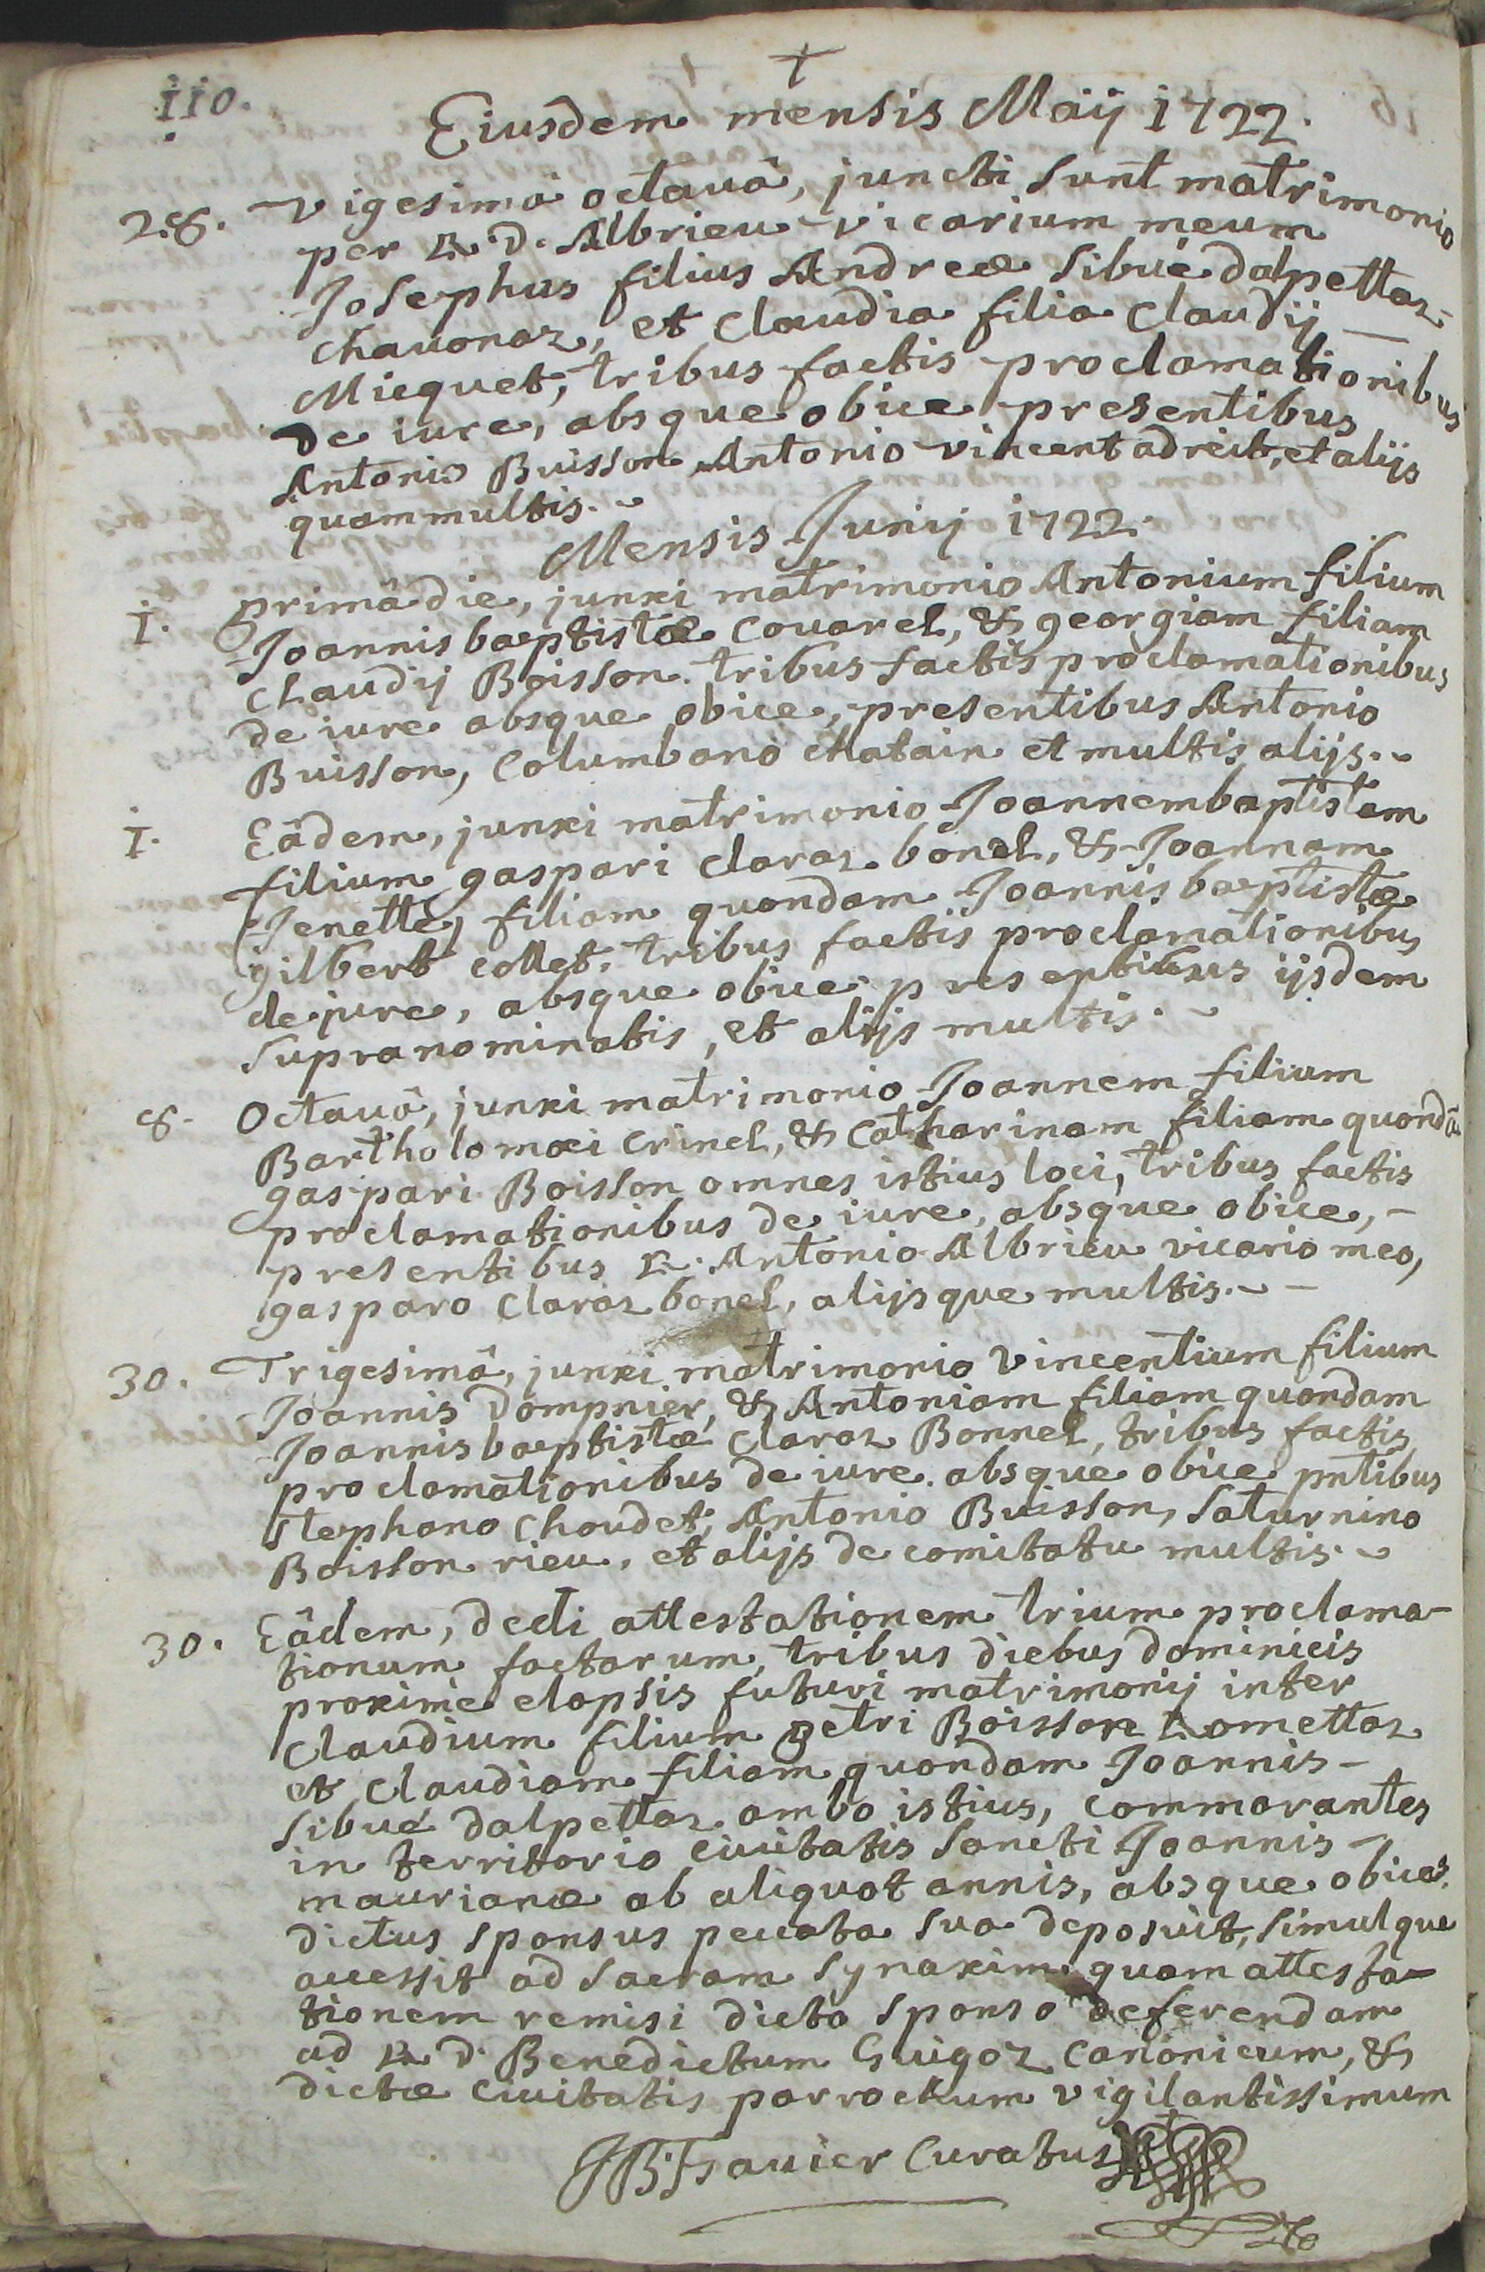 110.
†
Eiusdem mensis Maij 1722.
28. Vigesimâ octauâ, juncti sunt matrimonio
per R. D. Albrieu vicarium meum
Josephus filius Andreæ Sibué dalpettaz
chauonaz, et Claudia filia Claudij
Micquet, tribus factis proclamationibus
de iure, absque obice presentibus
Antonio Buisson Antonio vincent adreit, et alijs
quammultis.
Mensis Junij 1722.
1. primâ die, junxi matrimonio Antonium filium
Joannisbaptistæ Couarel, & georgiam filiam
Claudij Boisson. tribus factis proclamationibus
de iure absque obice, presentibus Antonio
Buisson, Columbano chatain et multis alijs.
1. Eâdem, junxi matrimonio Joannembaptistam
filium gaspari claraz bonel, & Joannam
(Jenette) filiam quondam Joannisbaptistæ
gilbert collet, tribus factis proclamationibus
de jure, absque obice presentibus ijsdem
supranominatis, et alijs multis.
8. Octauâ, junxi matrimonio Joannem filium
Bartholomæi Crinel, & Catharinam filiam quondã
gaspari Boisson omnes istius loci, tribus factis
proclamationibus de iure, absque obice,
presentibus R. Antonio Albrieu vicario meo,
gasparo Claraz bonel, alijsque multis.
30. Trigesimâ, junxi matrimonio Vincentium filium
Joannis Dompnier, & Antoniam filiam quondam
Joannisbaptistæ Claraz Bonnel, tribus factis
proclamationibus de iure absque obice pntibus
Stephano Choudet, Antonio Buisson, Saturnino
Boisson rieu, et alijs de comitatu multis.
30. Eâdem, dedi attestationem trium proclama-
tionum factarum, tribus diebus dominicis
proxime elapsis futuri matrimonij inter
Claudium filium petri Boisson Romettaz
et Claudiam filiam quondam Joannis
Sibué dalpettaz ambo istius, commorantes
in territorio ciuitatis Sancti Joannis
maurianæ ab aliquot annis, absque obice.
dictus sponsus peccata sua deposuit, simulque
accessit ad sacram synaxim quam attesta-
tionem remisi dicto sponso deferendam
ad R. D. Benedictum Guigoz Canonicum, &
dictæ Ciuitatis parrochum vigilantissimum
Curatus